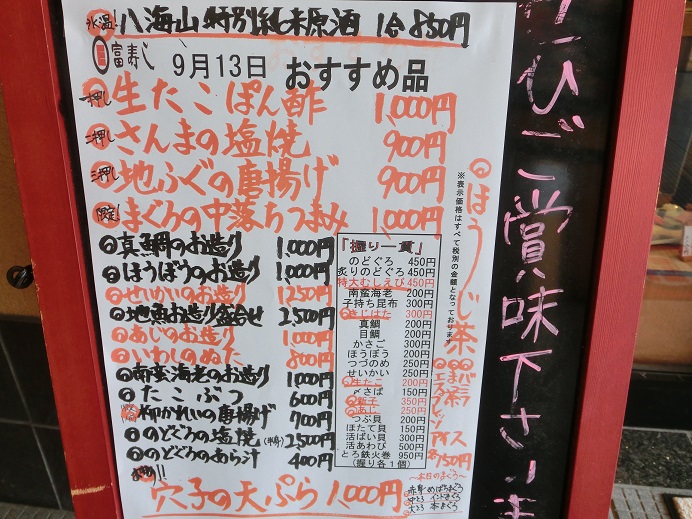 氷温！八海山 特別純米原酒 1合850円
富寿し 9月13日 おすすめ品
一押し 生たこぽん酢 1,000円
二押し さんまの塩焼 900円
三押し 地ふぐの唐揚げ 900円
限定 まぐろの中落ちつまみ 1,000円
真鯛のお造り 1,000円
ほうぼうのお造り 1,000円
せいかいのお造り 1250円
地魚お造り盛合せ 2,500円
あじのお造り 1,000円
いわしのぬた 800円
南蛮海老のお造り 1,000円
たこぶつ 600円
柳かれいの唐揚げ 700円
のどぐろの塩焼(半身) 2,500円
のどぐろのあら汁 400円
穴子の天ぷら 1,000円
「握り一貫」
のどぐろ 450円
炙りのどぐろ 450円
特大むしえび 450円
南蛮海老 200円
子持ち昆布 300円
きじはた 300円
真鯛 200円
目鯛 200円
かさご 300円
ほうぼう 200円
つづのめ 250円
せいかい 250円
生たこ 200円
〆さば 150円
穴子 350円
あじ 250円
つぶ貝 200円
ほたて貝 150円
活ばい貝 300円
活あわび 500円
とろ鉄火巻 950円
(握り各1個)
※表示価格はすべて税別の金額となっております。
ほうじ茶
アイス
各750円
～本日のまぐろ～
赤身 めばちまぐろ
中とろ インドまぐろ
大とろ 本まぐろ
ぜひご賞味下さいま